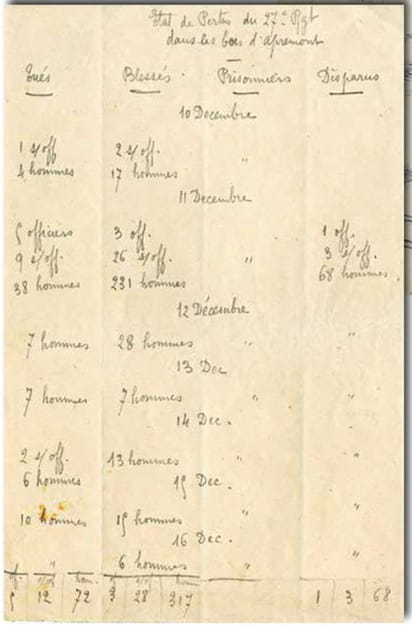 Etat de Pertes du 27e Rgt
dans les bois d'Apremont
Tués Blessés Prisonniers Disparus
10 Decembre
1 s/off 2 s/off.
4 hommes 17 hommes "
11 Decembre
5 officiers 3 off. 1 off.
9 s/off. 26 s/off. " 3 s/off.
38 hommes 231 hommes 68 hommes.
12 Décembre
7 hommes 28 hommes " "
13 Dec
7 hommes 7 hommes " "
14 Dec.
2 s/off. 13 hommes " "
6 hommes
15 Dec.
10 hommes 15 hommes " "
16 Dec.
" 6 hommes " "
off. s/off hom. off s/off hom
5 12 72 3 28 317 1 3 68